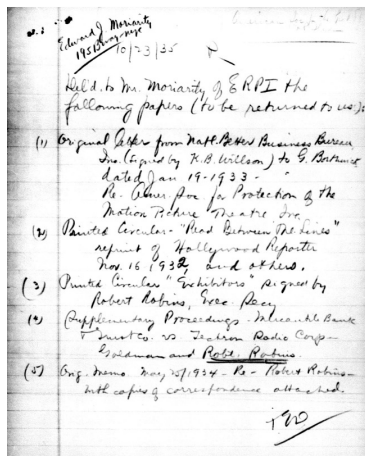 Edward J. Moriarity
1951 Bway - nyc
10/23/35
Del'd. to Mr. Moriarity of ERPI the
following papers (to be returned to us):
(1) Original letter from Natl. Better Business Bureau,
Inc. (signed by K.B. Willson) to G.
dated Jan 19-1933 -
Re- Amer. Soc. for Protection of the
Motion Picture Theatre, Inc.
(2) Printed Circular - "Read Between The Lines"
reprint of Hollywood Reporter
Nov. 16 1932, and others.
(3) Printed Circular "Exhibitors" signed by
Robert Robins, Exec. Secy
(4) Supplementary Proceedings - Mercantile Bank
& Trust Co. vs Tectron Radio Corp -
Goldman and Robt. Robins.
(5) Orig. Memo. May 25/1934 - Re - Robert Robins -
with copies of correspondence attached.